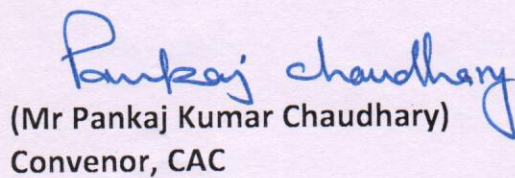 Pankaj chaudhary
(Mr Pankaj Kumar Chaudhary)
Convenor, CAC